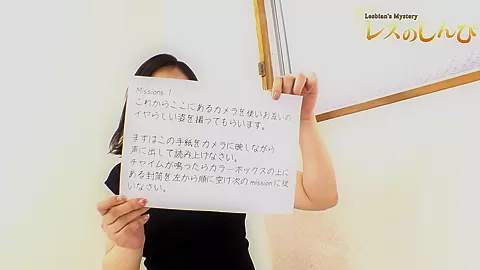 Lesbian's Mystery
レズのしんぴ
Missions 1
これからここにあるカメラを使いお互いの
イヤらしい姿を撮ってもらいます。
まずはこの手紙をカメラに映しながら
声に出して読み上げなさい。
チャイムが鳴ったらカラーボックスの上に
ある封筒を左から順に空け次のmissionに従
いなさい。